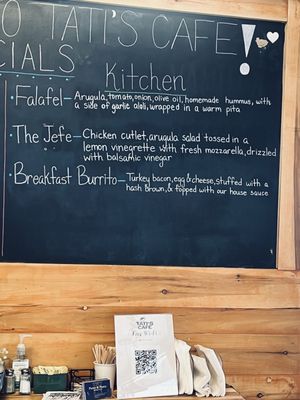 O TATI'S CAFE!
CIALS
Kitchen
• Falafel - Arugula, tomato, onion, olive oil, homemade hummus, with
a side of garlic aioli, wrapped in a warm pita
• The Jefe - Chicken cutlet, arugula salad tossed in a
lemon vinegrette with fresh mozzarella, drizzled
with balsamic vinegar
• Breakfast Burrito - Turkey bacon, egg & cheese, stuffed with a
hash brown, & topped with our house sauce
TATI'S
CAFE